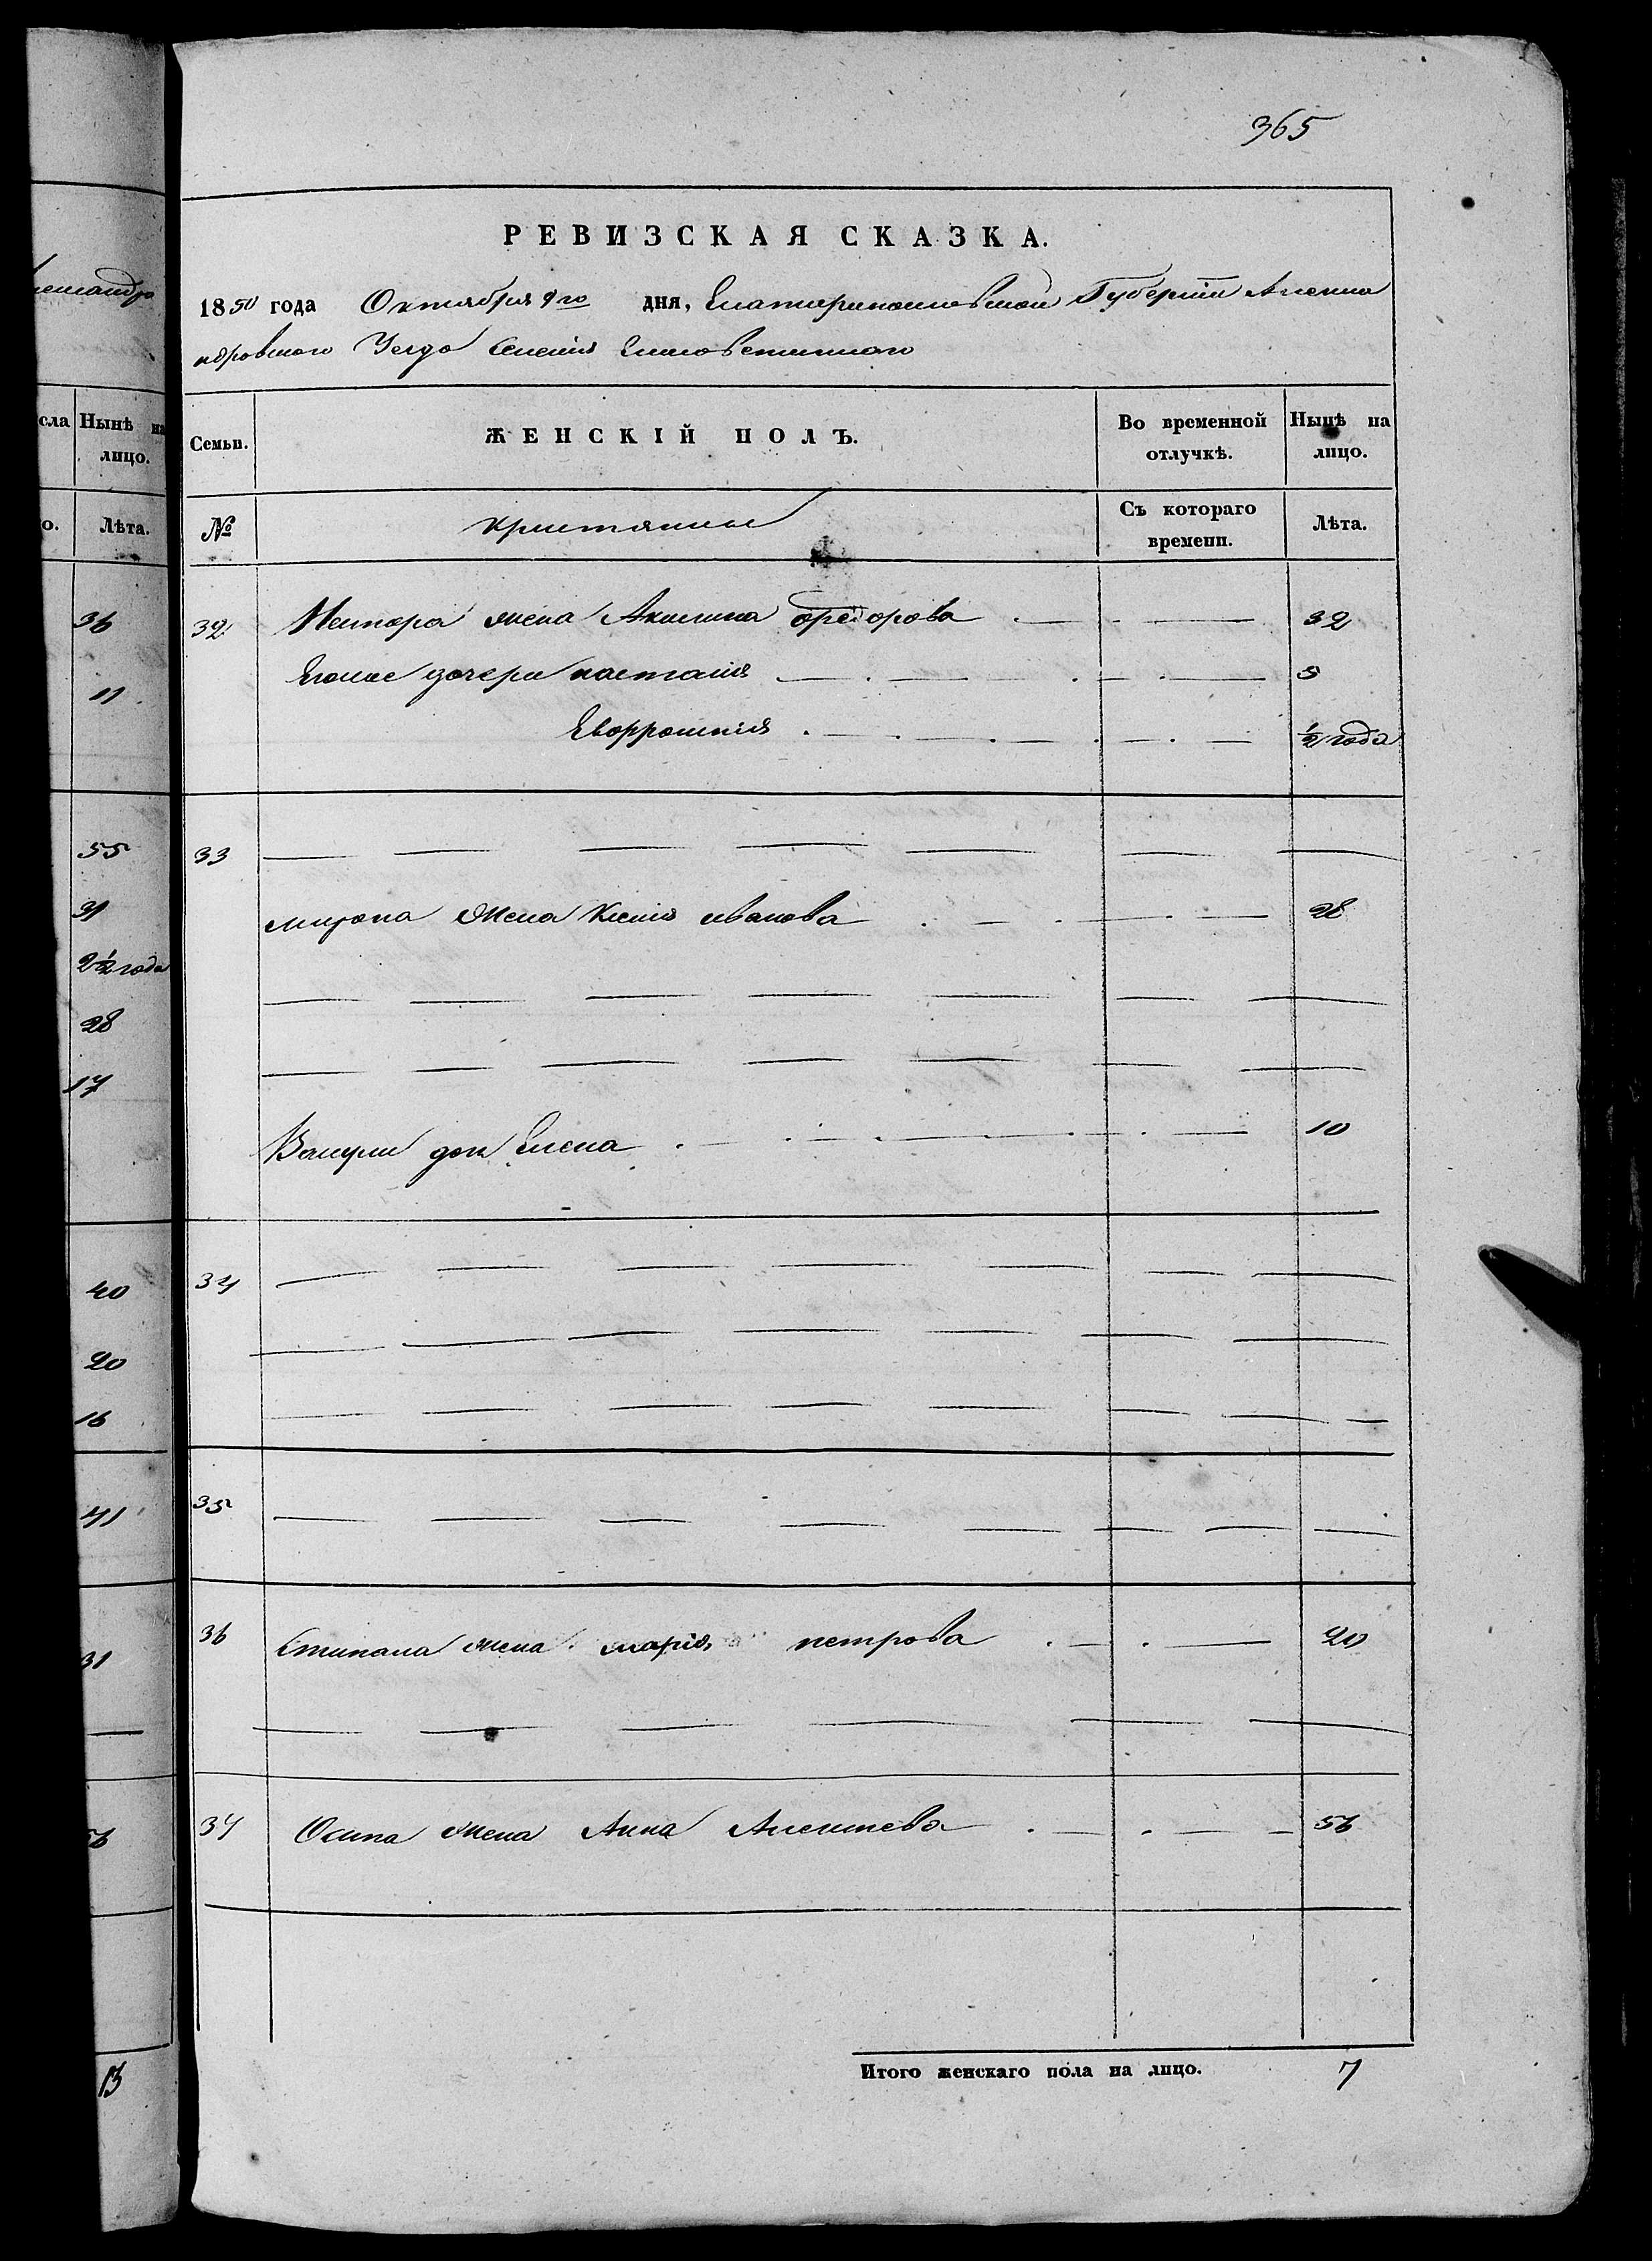 365
РЕВИЗСКАЯ СКАЗКА.
1850 года Октября 9го дня, Екатеринославской Губернии Алексан
дровского Уезда Селения Елисоветинского
Семьи. ЖЕНСКІЙ ПОЛЪ. Во временной отлучкѣ. Нынѣ на лицо.
№ Кристяние Съ котораго времени. Лѣта.
32 Нестора жена Акилина Федорова 32
Егоже дочери настасия 5
Евфросиния ½ года
33
мирона жена Ксения иванова 28
доч Елена 10
34
35
36 Стипана жена мария петрова 20
37 Осипа жена Анна Алексиева 56
Итого женскаго пола на лицо. 7
сла Нынѣ на
лицо.
о. Лѣта.
36
11
55
31
2½ года
28
17
40
20
16
41
31
56
13